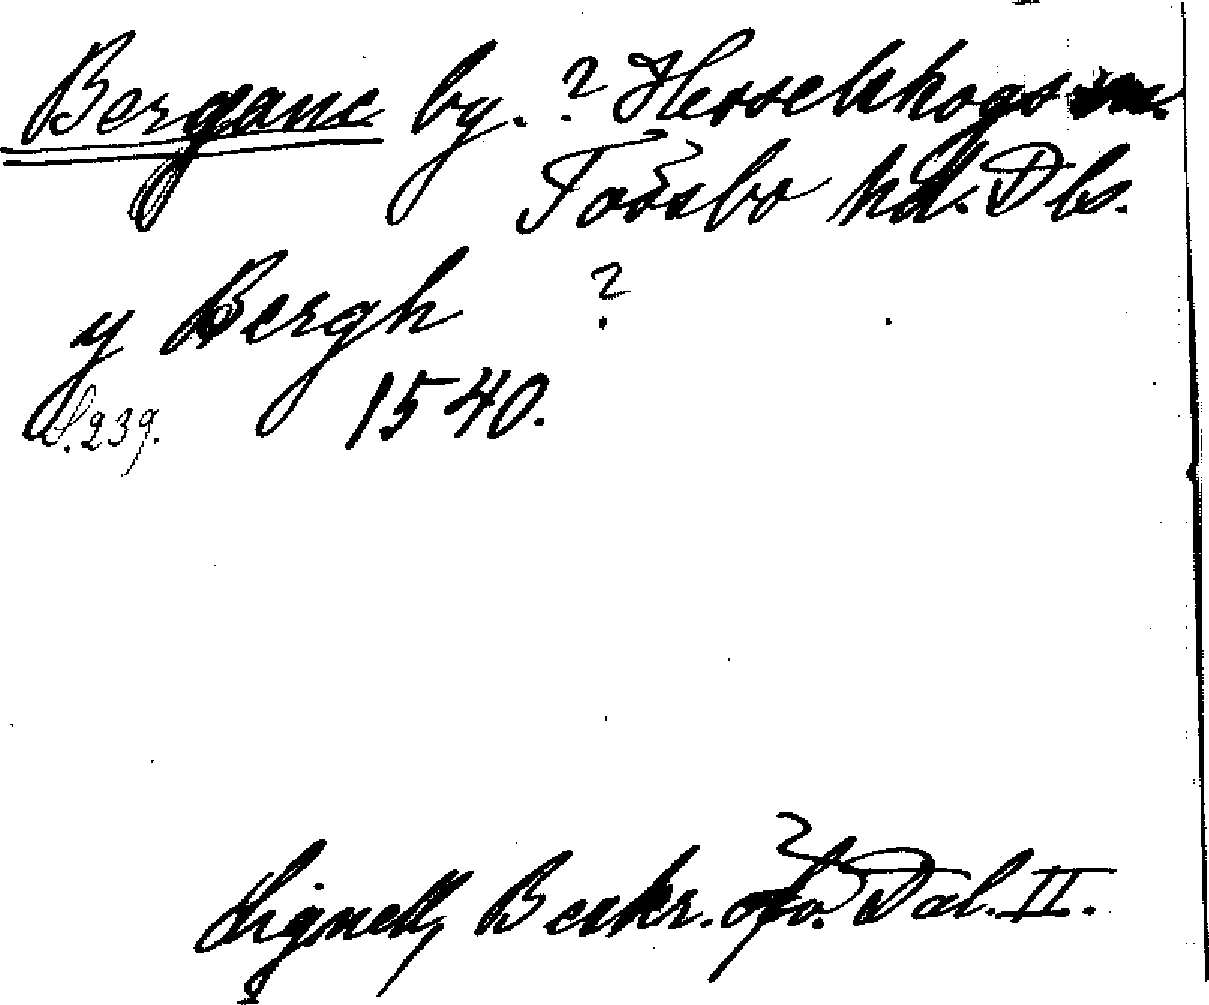 Bergane by. ? Hesselskogs sn.
Tössbo hd. Dls.
y Bergh ?
S. 239. 1540.
Lignell, Beskr. öfv. Dal. II.